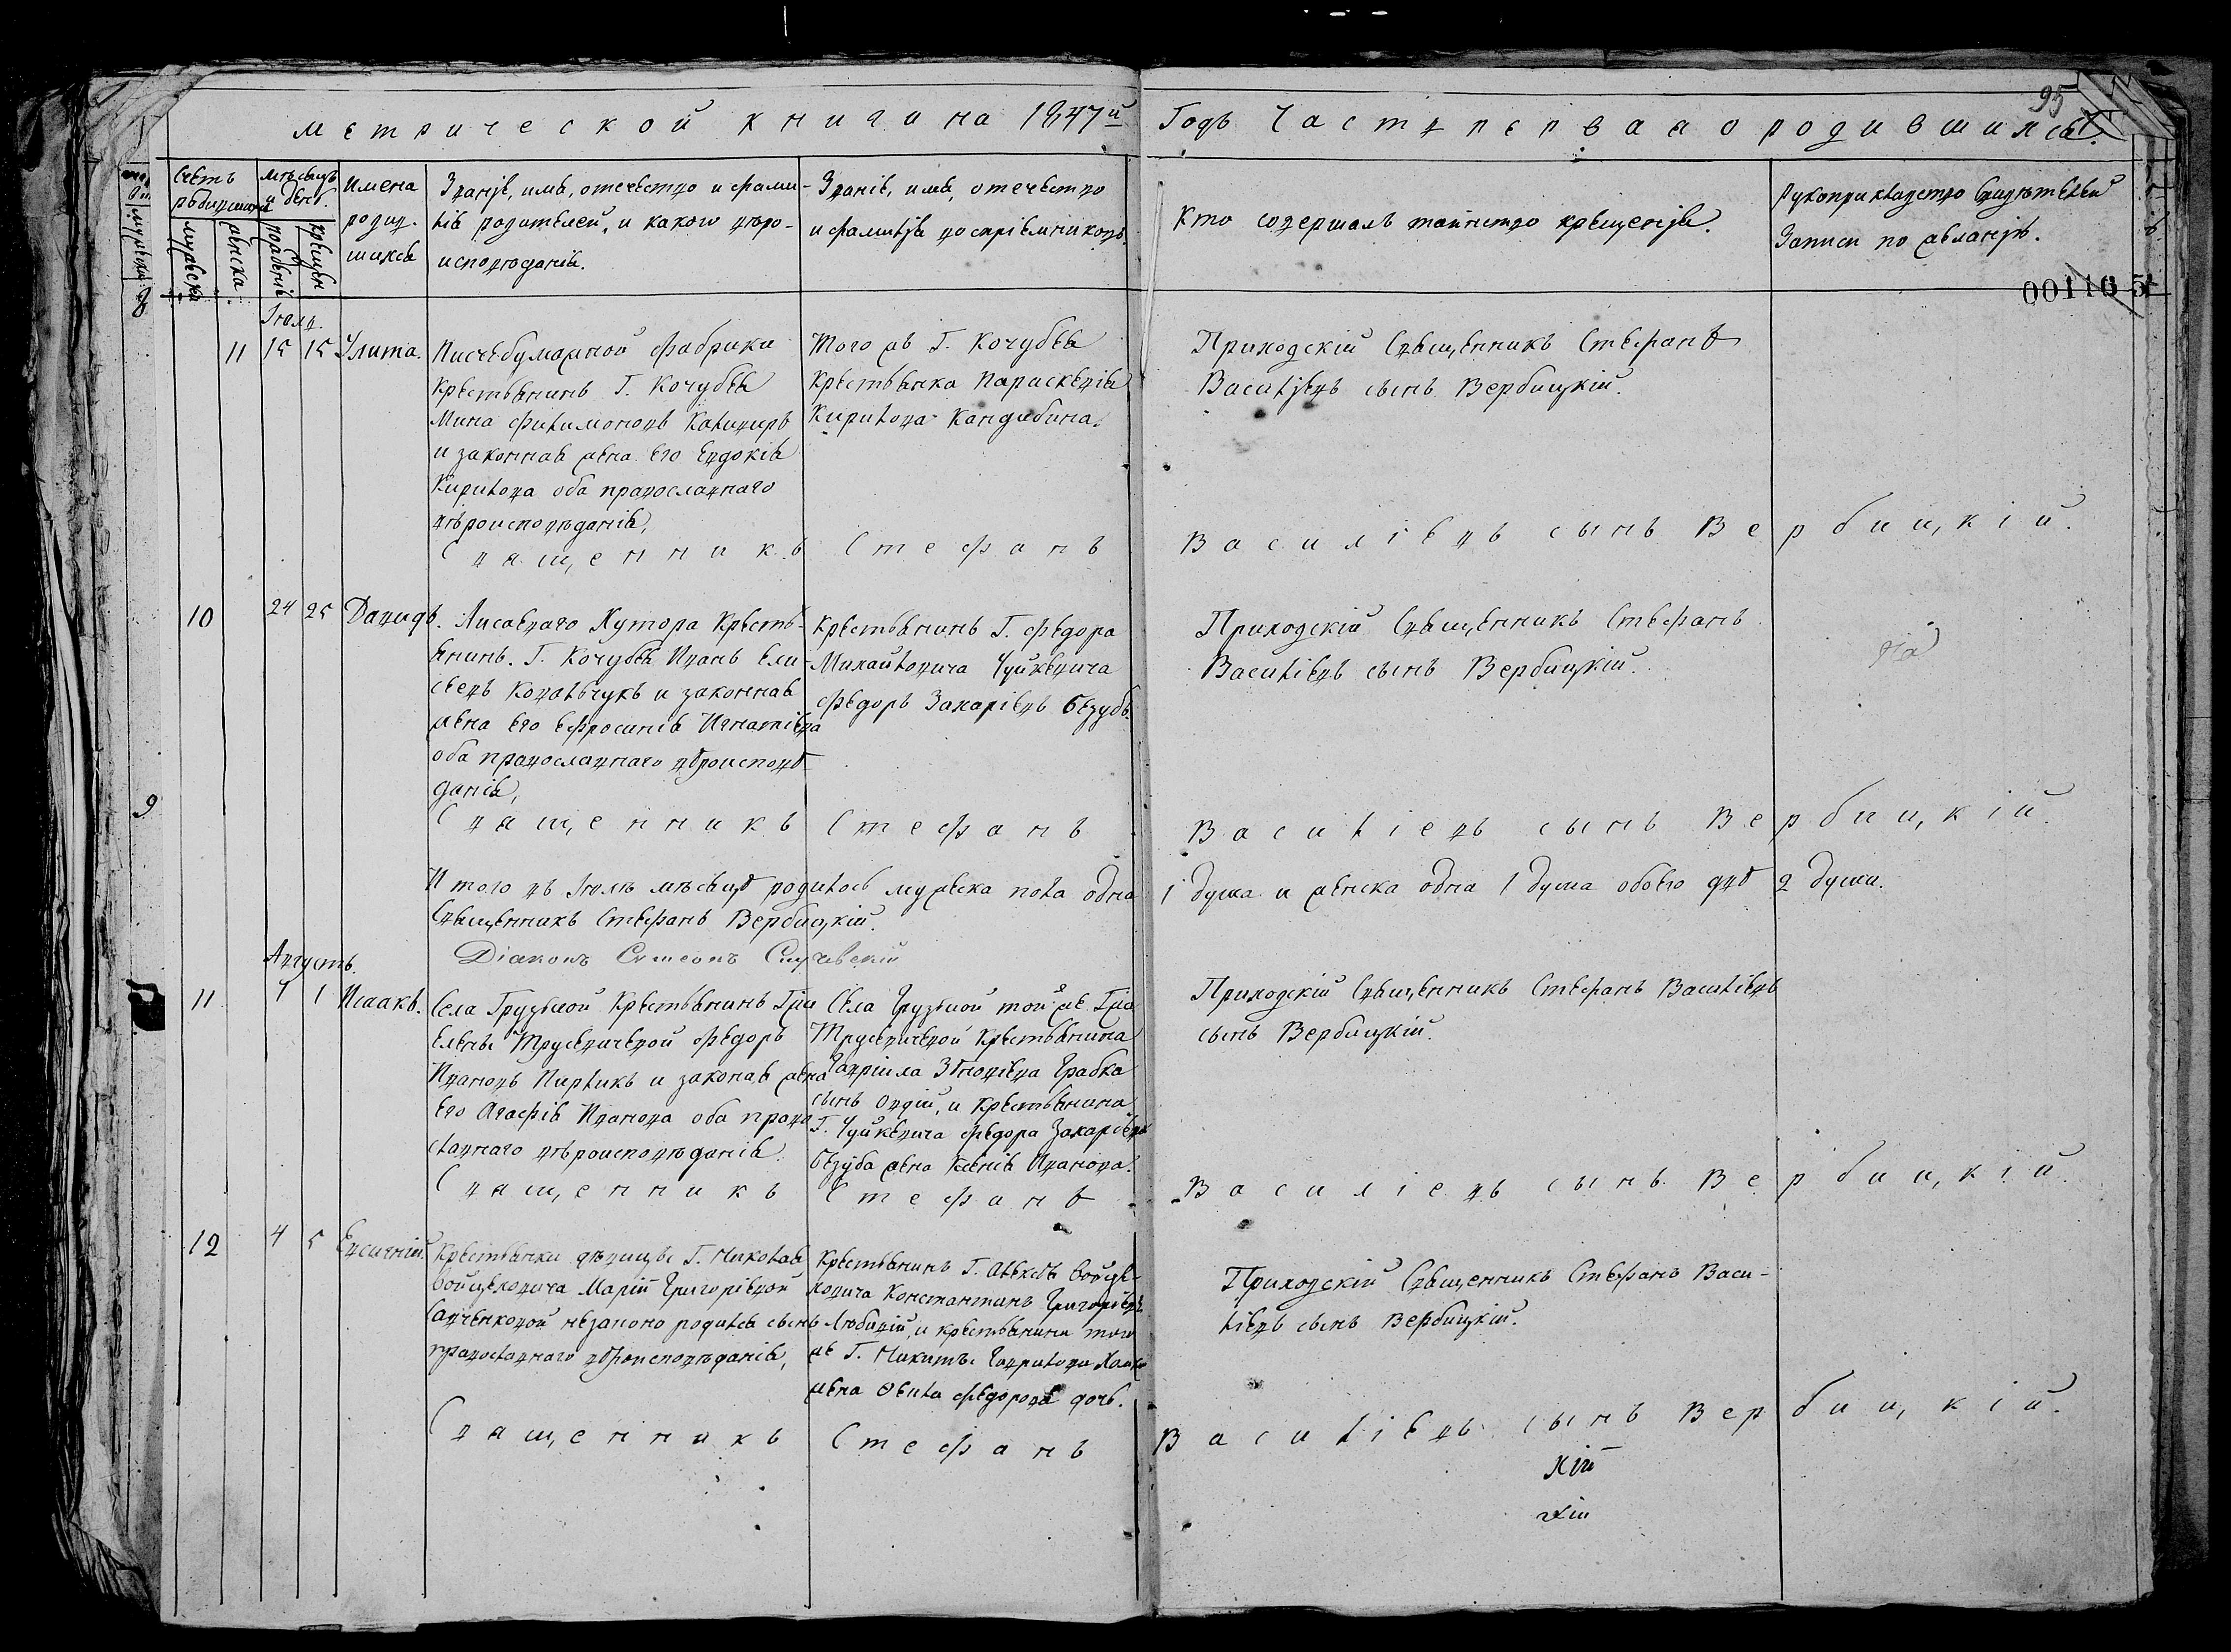 95
Метрической книги на 1847й Годъ Часть первая о родившихся.
Счетъ родившихся
мужеска
женска
Мѣсяцъ и день.
рожденія
крещен
Имена родив-
шихся
Званіе, имя, отечество и фами-
лія родителей, и какого вѣро-
исповѣданія.
Званіе, имя, отечество
и фамилія воспріемниковъ.
Кто совершалъ таинство крещенія.
Рукоприкладство свидѣтелей
Записи по желанію.
00116 5
8
Іюль.
11 15 15 Улита.
Писчебумажной фабрики
Крестьянинъ Г. Кочубея
Мина Филимоновъ
и законная жена его Евдокія
Кирилова оба православнаго
вѣроисповѣданія,
Того жъ Г. Кочубея
Крестьянка Параскевія
Кирилова Кандибина.
Приходскій Священникъ Стефанъ
Василіевъ сынъ Вербицкій.
Священникъ Стефанъ Василіевъ сынъ Вербицкій.
10 24 25 Давидъ.
Лисаеваго Хутора Кресть-
янинъ. Г. Кочубея Иванъ Ели-
сеевъ Ковальчукъ и законная
жена его Ефросинія Игнатіева
оба православнаго вѣроисповѣ-
данія,
Крестьянинъ Г. Федора
Михайловича Чуйкевича
Федоръ Захаріевъ Беззубъ.
Приходскій Священникъ Стефанъ
Василіевъ сынъ Вербицкій.
9
Священникъ Стефанъ Василіевъ сынъ Вербицкій.
Итого въ Іюлѣ мѣсяцѣ родилось мужеска пола одна 1 душа и женска одна 1 душа обоего 2 души.
Священникъ Стефанъ Вербицкій.
Діаконъ Симеонъ
Августъ.
11 1 1 Исаакъ.
Села Грузской Крестьянинъ Гжи
Елены Трусевичевой Федоръ
Ивановъ Пирликъ и законая жена
его Агафія Иванова оба право
славнаго вѣроисповѣданія.
Села Грузской той же Гжи
Трусевичевой Крестьянина
Гавріила Зѣновіева Грабка
сынъ Овдій, и Крестьянина
Г. Чуйкевича Федора Захаріева
Беззуба жена Ксенія Иванова.
Приходскій Священникъ Стефанъ Василіевъ
сынъ Вербицкій.
Священникъ Стефанъ Василіевъ сынъ Вербицкій.
12 4 5 Евсигній.
Крестьянки дѣвицы Г. Николая
Войцеховича Маріи Григоріевой
Савченковой незаконо родился сынъ
православнаго вѣроисповѣданія,
Крестьянинъ Г. Алексѣя Войце-
ховича Константинъ Григоріевъ
Любивій, и крестьянина того
же Г. Никиты Гаврилова
жена Феклa Федорова дочь.
Приходскій Священникъ Стефанъ Васи-
ліевъ сынъ Вербицкій.
Священникъ Стефанъ Василіевъ сынъ Вербицкій.